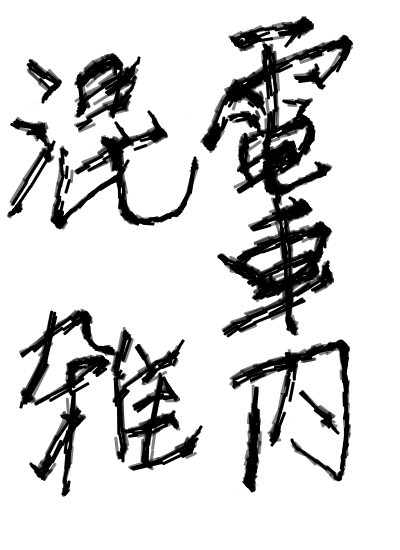 電車内
混雑